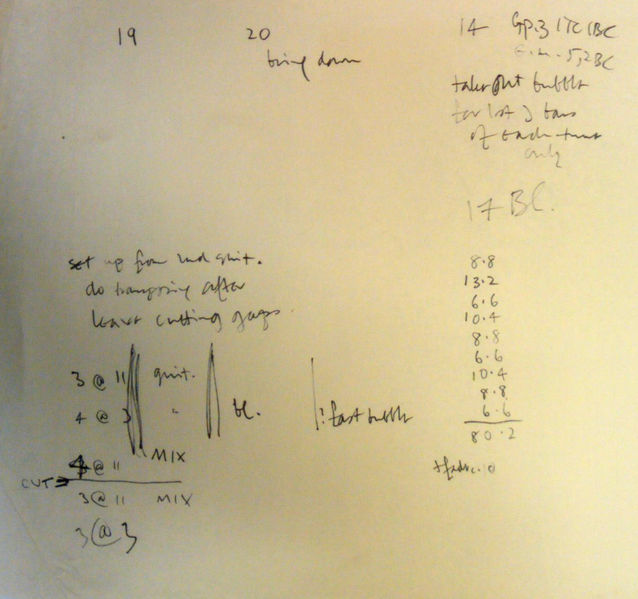 19 20
bring down
14 Gp.3 1TC 1BC
5,2BC
take out bubble
for last 3 bars
of each time
only
17 BC.
set up from 2nd guit.
do transposing after
leave cutting gaps
8.8
13.2
6.6
10.4
8.8
6.6
10.4
8.8
6.6
80.2
3 @ 11 guit.
4 @ 3 " : fast bubble
4 @ 11 MIX
CUT →
3 @ 11 MIX
3 @ 3